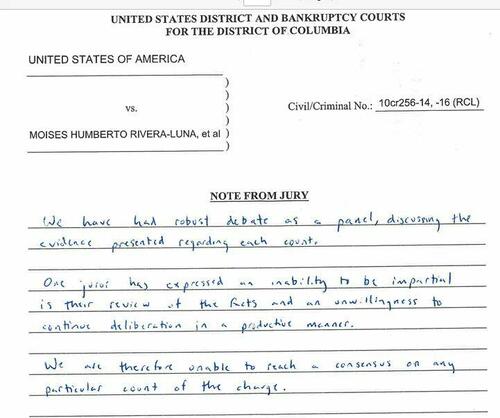 UNITED STATES DISTRICT AND BANKRUPTCY COURTS
FOR THE DISTRICT OF COLUMBIA
UNITED STATES OF AMERICA
vs.
Civil/Criminal No.: 10cr256-14, -16 (RCL)
MOISES HUMBERTO RIVERA-LUNA, et al
NOTE FROM JURY
We have had robust debate as a panel, discussing the
evidence presented regarding each count.
One juror has expressed an inability to be impartial
is their review of the facts and an unwillingness to
continue deliberation in a productive manner.
We are therefore unable to reach a consensus on any
particular count of the charge.